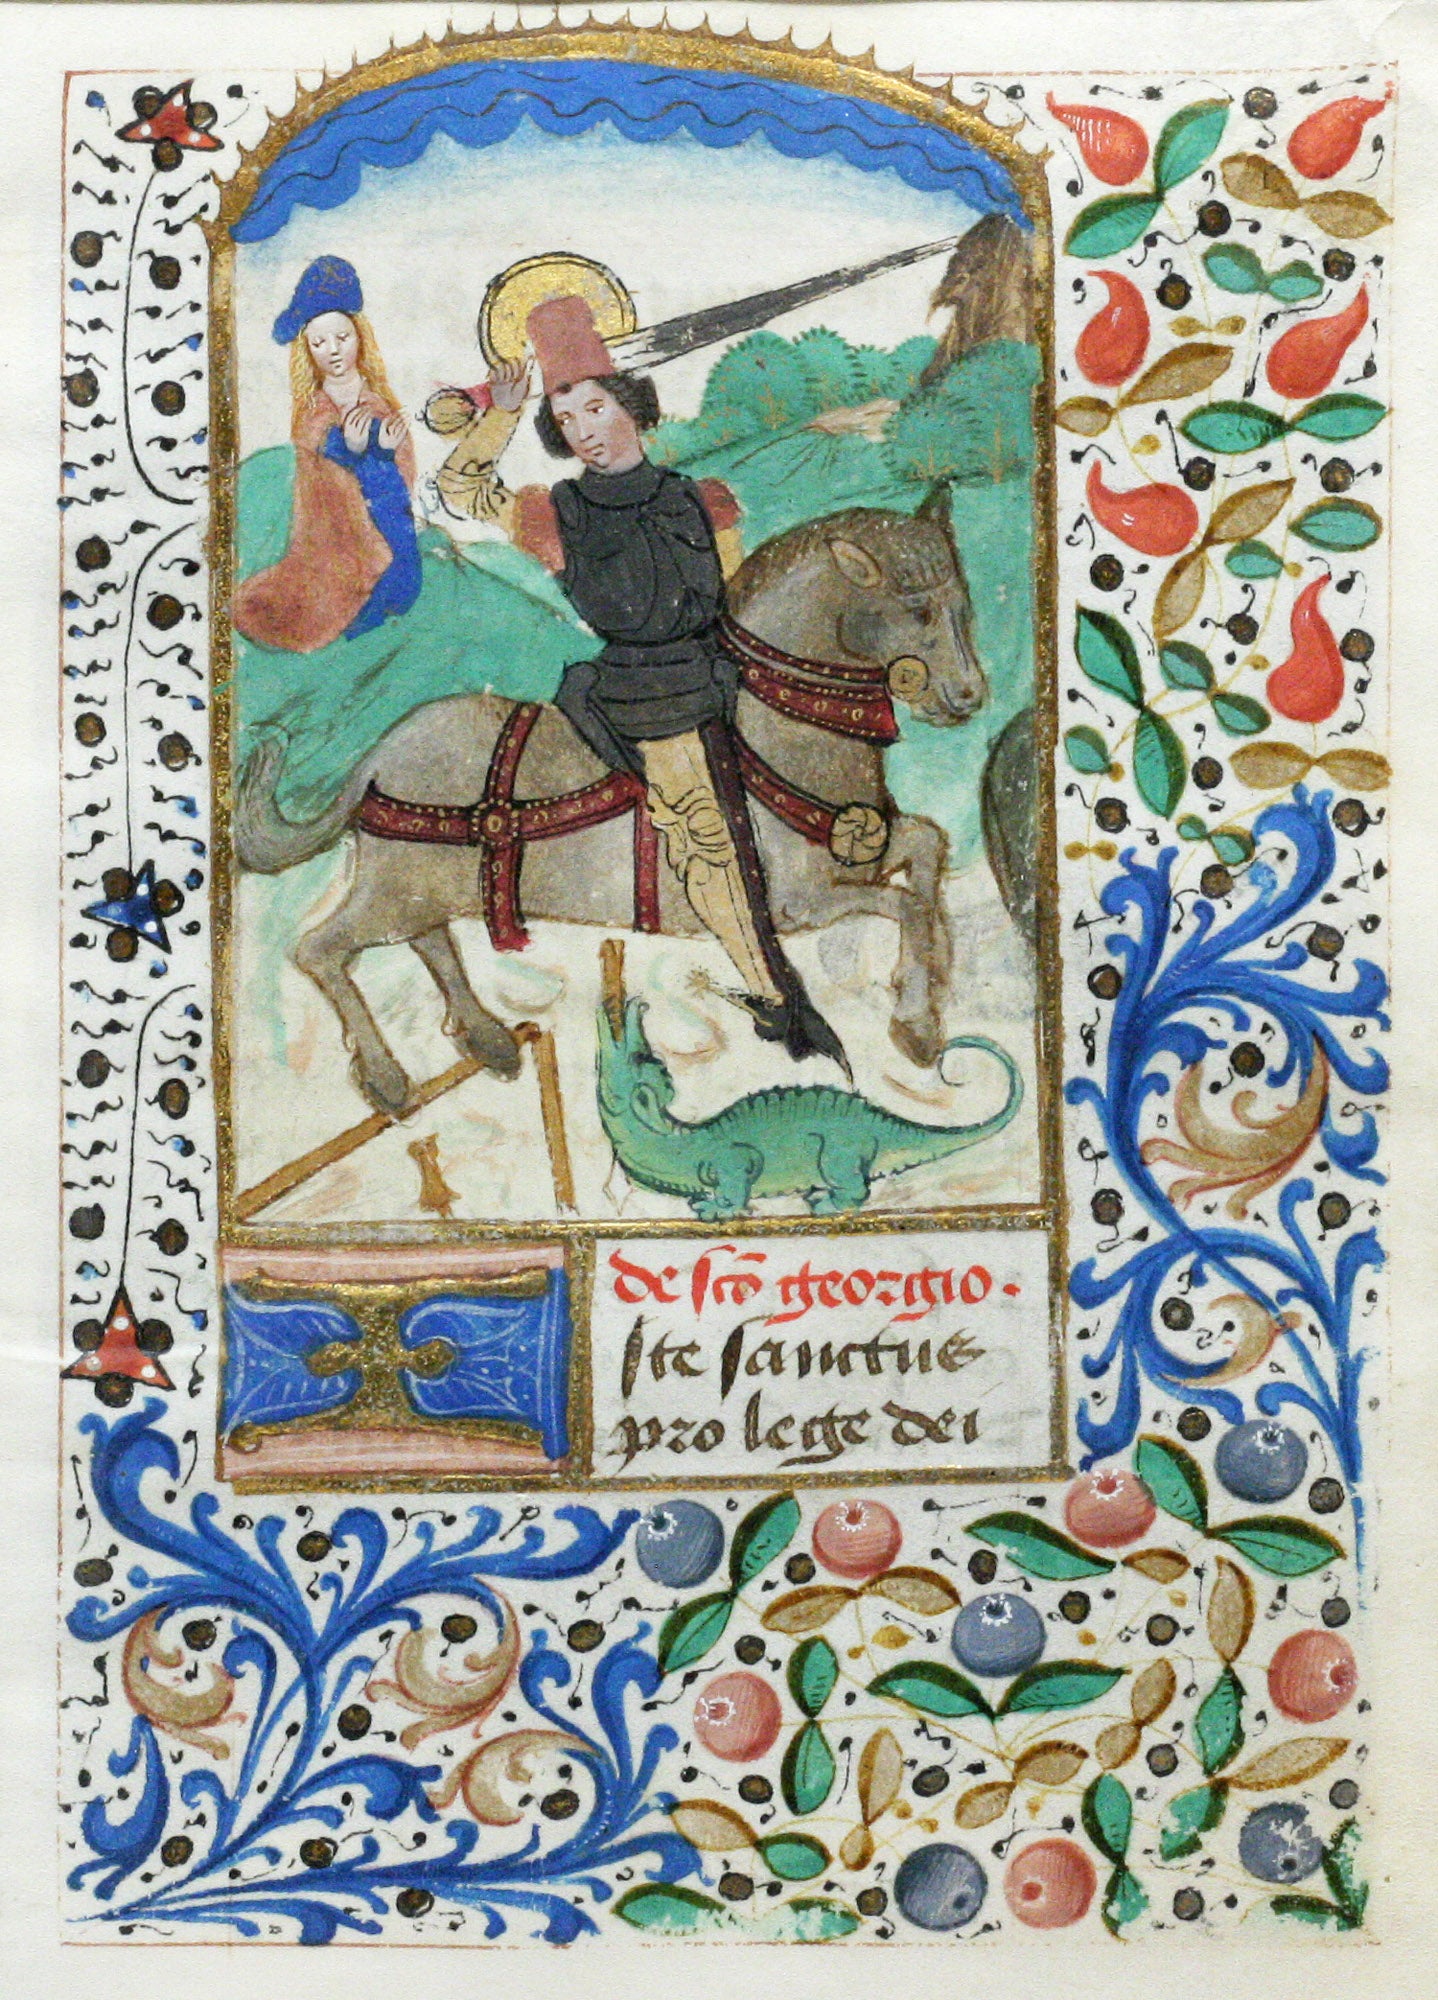 de scō georgio.
Iste sanctus
pro lege dei